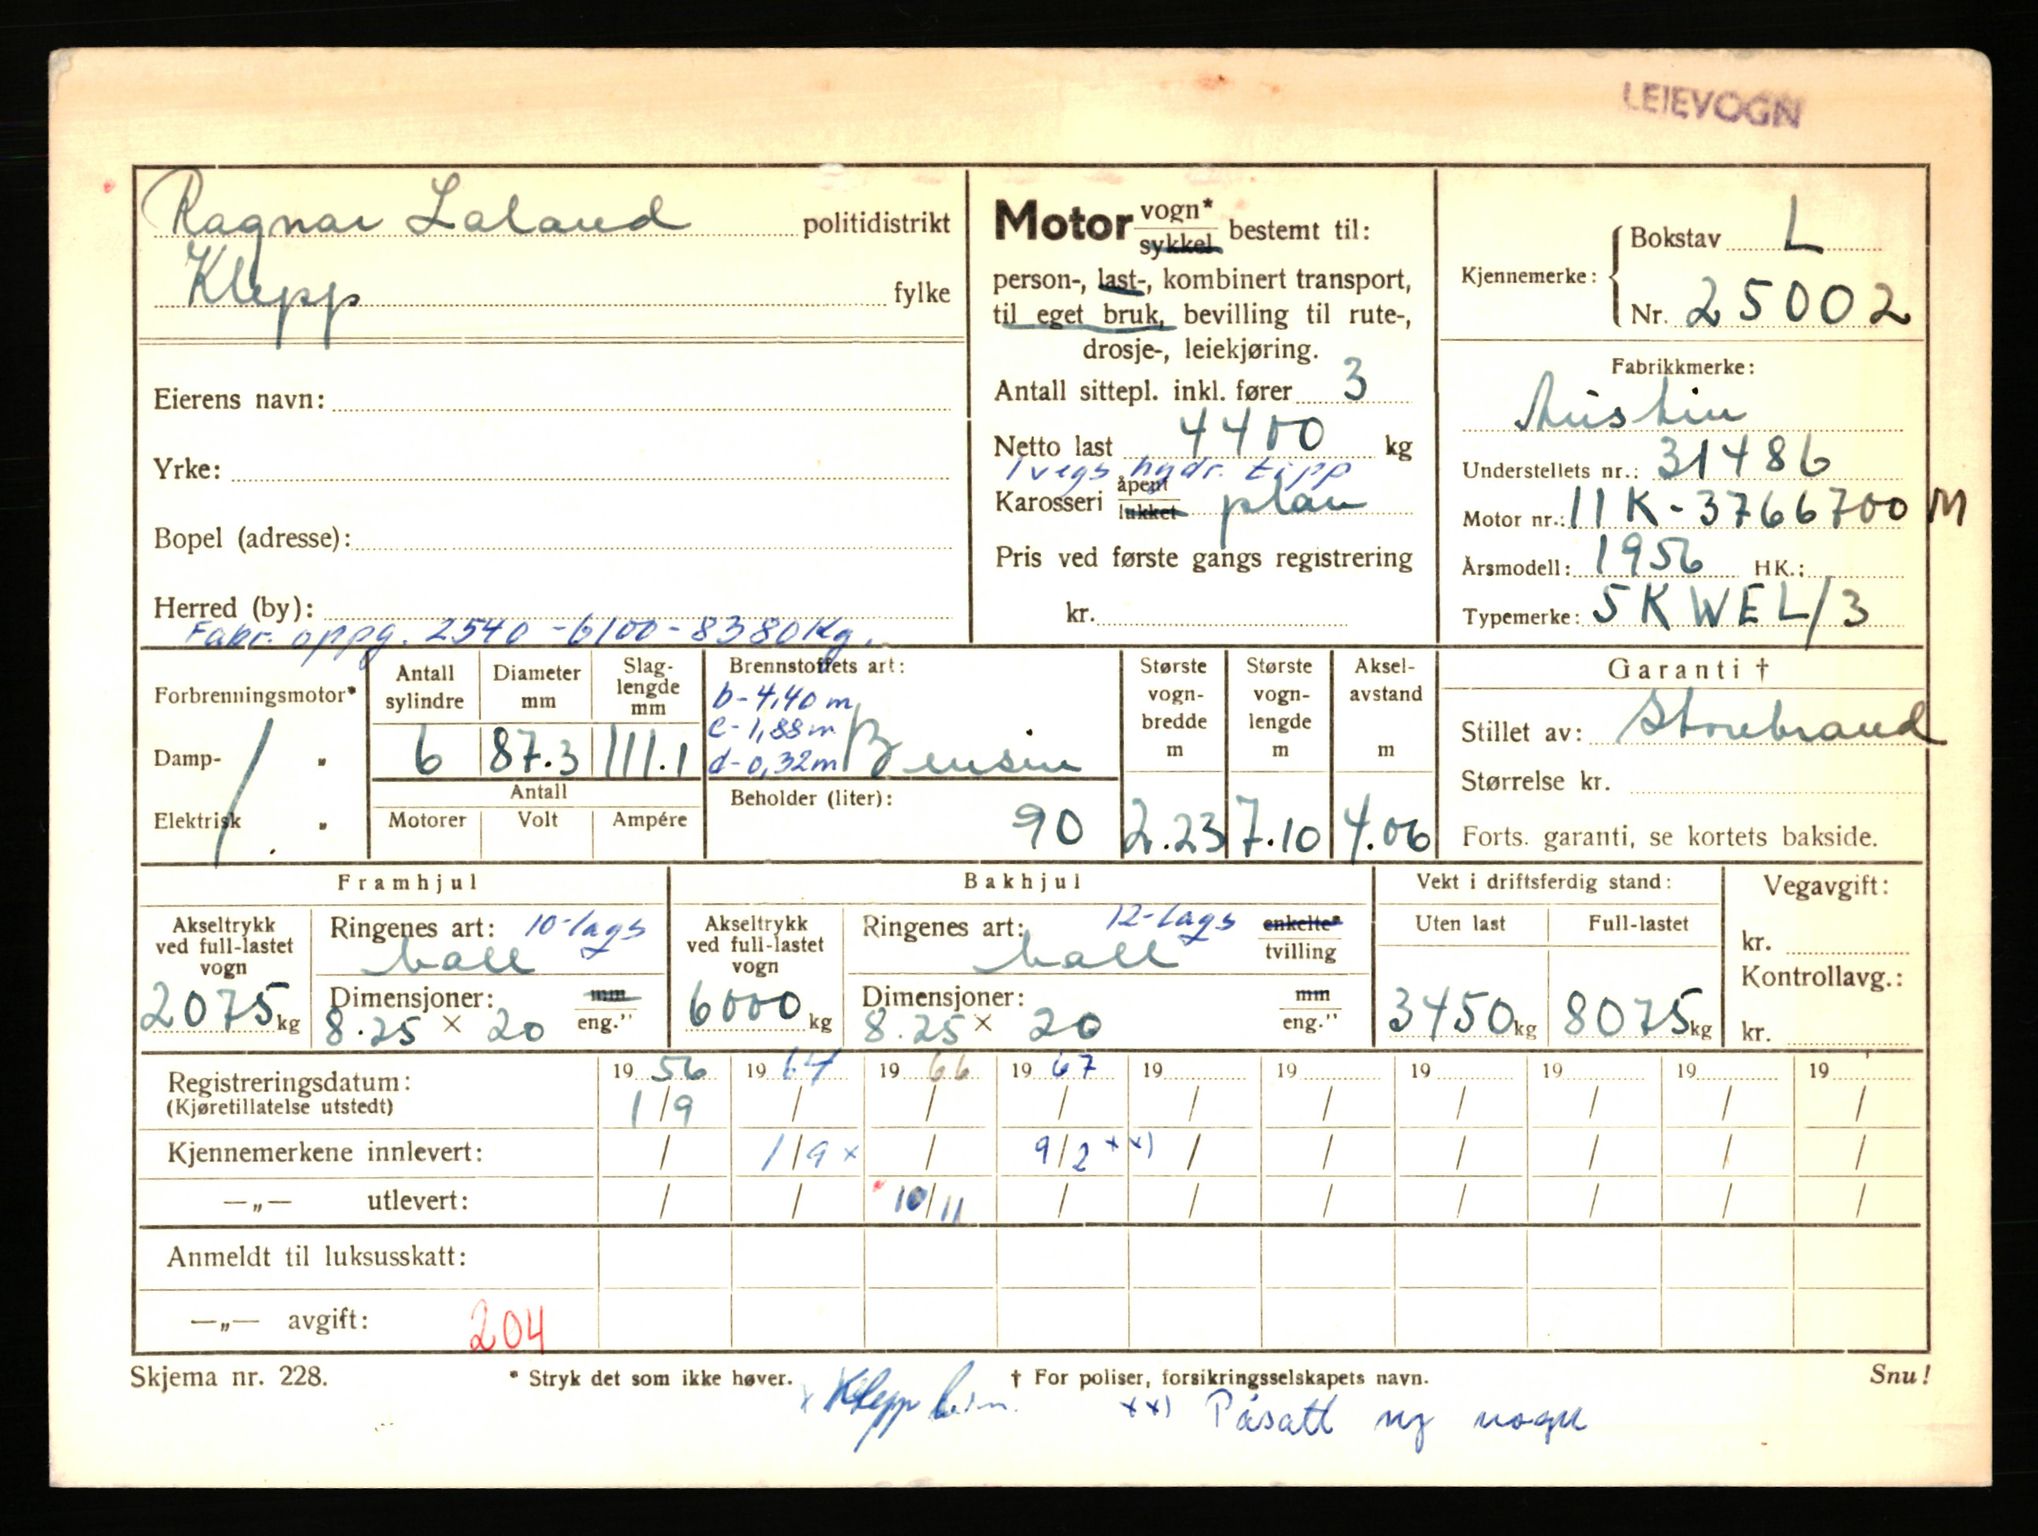 LEIEVOGN
Ragnar Laland politidistrikt
Klepp fylke
Eierens navn:
Yrke:
Bopel (adresse):
Herred (by):
Fabr. oppg. 2540 - 6100 - 8380 Kg.
Motor vogn* sykkel bestemt til:
person-, last-, kombinert transport,
til eget bruk, bevilling til rute-,
drosje-, leiekjøring.
Antall sittepl. inkl. fører 3
Netto last 4400 kg
1 vegs hydr. tipp
Karosseri åpent lukket plan
Pris ved første gangs registrering
kr.
Kjennemerke: Bokstav L
Nr. 25002
Fabrikkmerke:
Austin
Understellets nr.: 31486
Motor nr.: 11K-3766700 M
Årsmodell: 1956 HK.:
Typemerke: 5KWEL/3
Forbrenningsmotor*
Damp- "
Elektrisk "
Antall sylindre
6
Diameter mm
87.3
Slaglengde mm
111.1
Antall
Motorer Volt Ampére
Brennstoffets art:
b-4,40 m
c-1,88 m
d-0,32 m Bensin
Beholder (liter):
90
Største vognbredde m
2.23
Største vognlengde m
7.10
Akselavstand m
4.06
Garanti †
Stillet av: Storebrand
Størrelse kr.
Forts. garanti, se kortets bakside.
Framhjul
Akseltrykk ved full-lastet vogn
2075 kg
Ringenes art: 10-lags
ball
Dimensjoner: mm
8.25 × 20 eng."
Bakhjul
Akseltrykk ved full-lastet vogn
6000 kg
Ringenes art: 12-lags enkelte* tvilling
ball
Dimensjoner: mm
8.25 × 20 eng."
Vekt i driftsferdig stand:
Uten last Full-lastet
3450 kg 8075 kg
Vegavgift:
kr.
Kontrollavg.:
kr.
Registreringsdatum: 19 56 19 64 19 66 19 67 19 19 19 19 19 19
(Kjøretillatelse utstedt) 1/9 / / / / / / / / /
Kjennemerkene innlevert: / 1/9 x / 9/2 xx) / / / / / /
—„— utlevert: / / 10/11 / / / / / / /
Anmeldt til luksusskatt:
—„— avgift: 204
Skjema nr. 228. * Stryk det som ikke høver. † For poliser, forsikringsselskapets navn. Snu!
x Klepp xx) Påsatt ny vogn